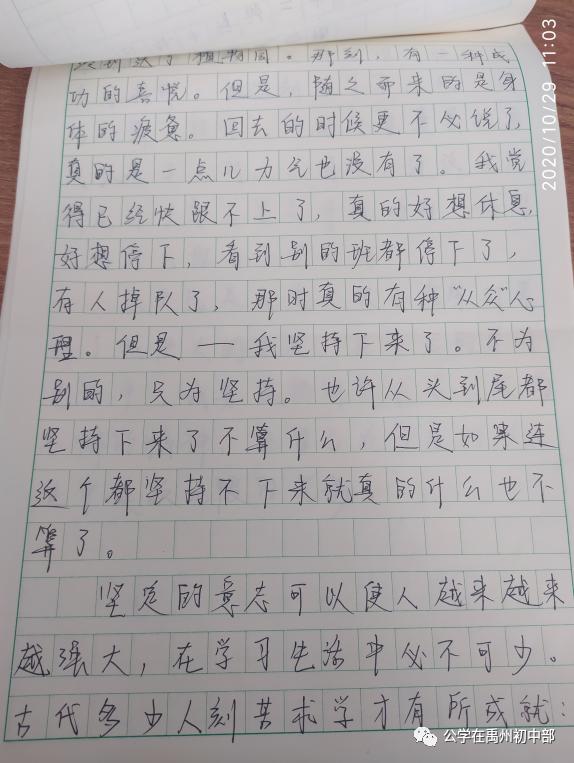 终到达了植物园。那刻，有一种成
功的喜悦。但是，随之而来的是身
体的疲惫。回去的时候更不必说了，
真的是一点儿力气也没有了。我觉
得已经快跟不上了，真的好想休息，
好想停下，看到别的班都停下了，
有人掉队了，那时真的有种“从众”心
理。但是——我坚持下来了。不为
别的，只为坚持。也许从头到尾都
坚持下来了不算什么，但是如果连
这个都坚持不下来就真的什么也不
算了。
坚定的意志可以使人越来越来
越强大，在学习生活中必不可少。
古代多少人刻苦求学才有所成就：
2020/10/29 11:03
公学在禹州初中部